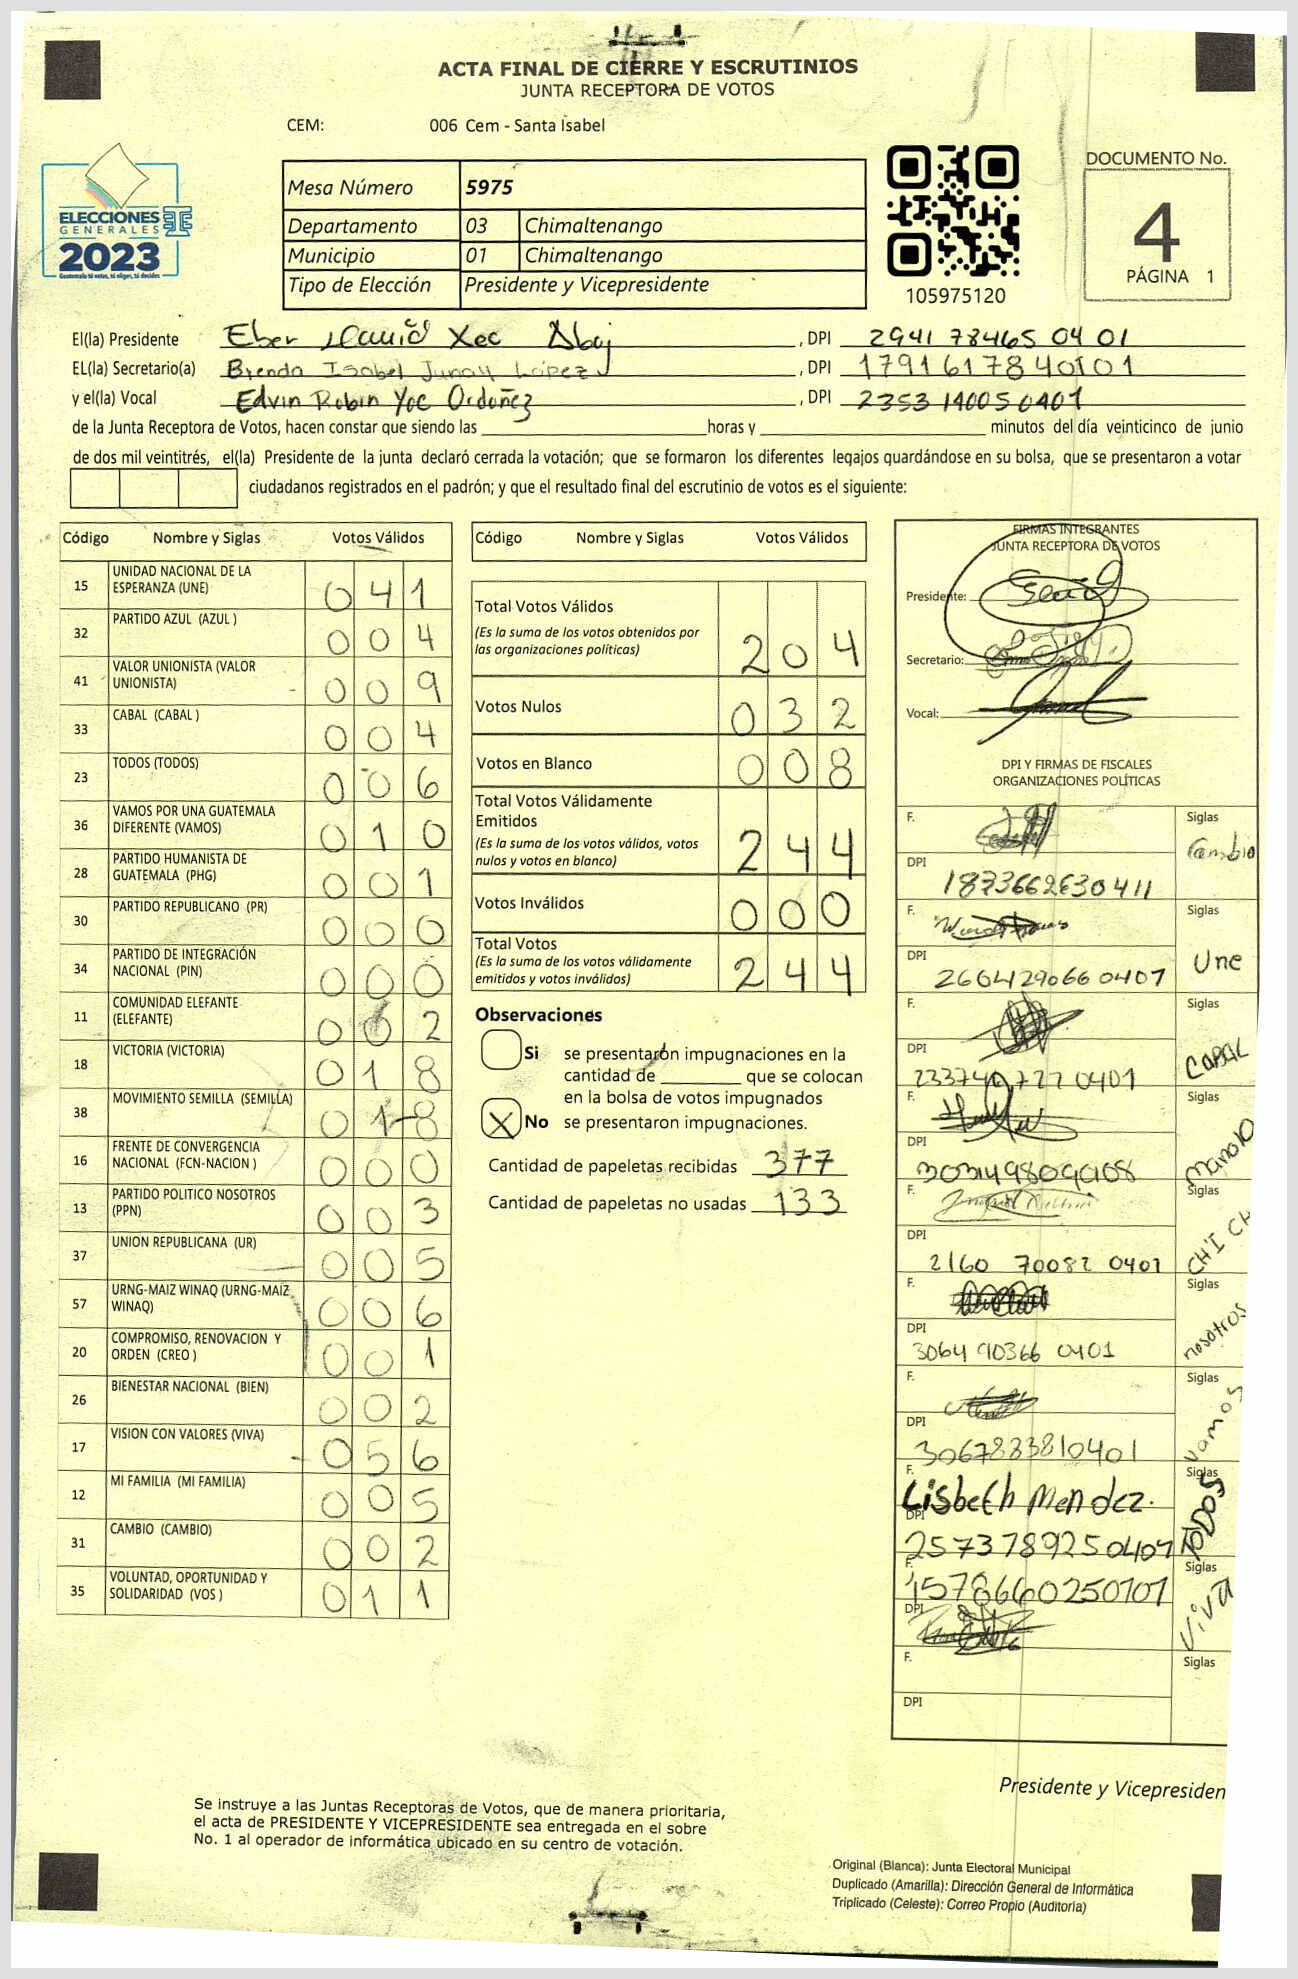 ACTA FINAL DE CIERRE Y ESCRUTINIOS
JUNTA RECEPTORA DE VOTOS
CEM: 006 Cem - Santa Isabel
ELECCIONES
GENERALES
2023
Guatemala tú votas, tú eliges, tú decides
Mesa Número 5975
Departamento 03 Chimaltenango
Municipio 01 Chimaltenango
Tipo de Elección Presidente y Vicepresidente
105975120
DOCUMENTO No.
4
PÁGINA 1
El(la) Presidente Eber David Xec Abaj, DPI 2941 78465 04 01
EL(la) Secretario(a) Brenda Isabel Junay López, DPI 1791617840101
y el(la) Vocal Edvin Robin Yoc Ordoñez, DPI 2353 140050401
de la Junta Receptora de Votos, hacen constar que siendo las ____ horas y ____ minutos del día veinticinco de junio
de dos mil veintitrés, el(la) Presidente de la junta declaró cerrada la votación; que se formaron los diferentes legajos guardándose en su bolsa, que se presentaron a votar
ciudadanos registrados en el padrón; y que el resultado final del escrutinio de votos es el siguiente:
Código Nombre y Siglas Votos Válidos
15 UNIDAD NACIONAL DE LA ESPERANZA (UNE) 041
32 PARTIDO AZUL (AZUL ) 004
41 VALOR UNIONISTA (VALOR UNIONISTA) 009
33 CABAL (CABAL ) 004
23 TODOS (TODOS) 006
36 VAMOS POR UNA GUATEMALA DIFERENTE (VAMOS) 010
28 PARTIDO HUMANISTA DE GUATEMALA (PHG) 001
30 PARTIDO REPUBLICANO (PR) 000
34 PARTIDO DE INTEGRACIÓN NACIONAL (PIN) 000
11 COMUNIDAD ELEFANTE (ELEFANTE) 002
18 VICTORIA (VICTORIA) 018
38 MOVIMIENTO SEMILLA (SEMILLA) 018
16 FRENTE DE CONVERGENCIA NACIONAL (FCN-NACION ) 000
13 PARTIDO POLITICO NOSOTROS (PPN) 003
37 UNION REPUBLICANA (UR) 005
57 URNG-MAIZ WINAQ (URNG-MAIZ WINAQ) 006
20 COMPROMISO, RENOVACION Y ORDEN (CREO ) 001
26 BIENESTAR NACIONAL (BIEN) 002
17 VISION CON VALORES (VIVA) 056
12 MI FAMILIA (MI FAMILIA) 005
31 CAMBIO (CAMBIO) 002
35 VOLUNTAD, OPORTUNIDAD Y SOLIDARIDAD (VOS ) 011
Código Nombre y Siglas Votos Válidos
Total Votos Válidos
(Es la suma de los votos obtenidos por las organizaciones políticas) 204
Votos Nulos 032
Votos en Blanco 008
Total Votos Válidamente Emitidos
(Es la suma de los votos válidos, votos nulos y votos en blanco) 244
Votos Inválidos 000
Total Votos
(Es la suma de los votos válidamente emitidos y votos inválidos) 244
Observaciones
Si se presentarón impugnaciones en la
cantidad de ____ que se colocan
en la bolsa de votos impugnados
X No se presentaron impugnaciones.
Cantidad de papeletas recibidas 377
Cantidad de papeletas no usadas 133
FIRMAS INTEGRANTES
JUNTA RECEPTORA DE VOTOS
Presidente:
Secretario:
Vocal:
DPI Y FIRMAS DE FISCALES
ORGANIZACIONES POLÍTICAS
F. Siglas Cambio
DPI 1873662630411
F. Siglas Une
DPI 2604290660407
F. Siglas CABAL
DPI
F. Siglas Manolo
DPI
F. Siglas CHI CH
DPI 2160 70082 0401
F. Siglas nosotros
DPI 3064 90366 0401
F. Siglas vamos
DPI 3067833810401
F. Lisbeth Mendez. Siglas TODOS
DPI 2573789250407
F. 1578660250101 Siglas VIVA
DPI
F. Siglas
DPI
Presidente y Vicepresiden
Se instruye a las Juntas Receptoras de Votos, que de manera prioritaria,
el acta de PRESIDENTE Y VICEPRESIDENTE sea entregada en el sobre
No. 1 al operador de informática ubicado en su centro de votación.
Original (Blanca): Junta Electoral Municipal
Duplicado (Amarilla): Dirección General de Informática
Triplicado (Celeste): Correo Propio (Auditoría)